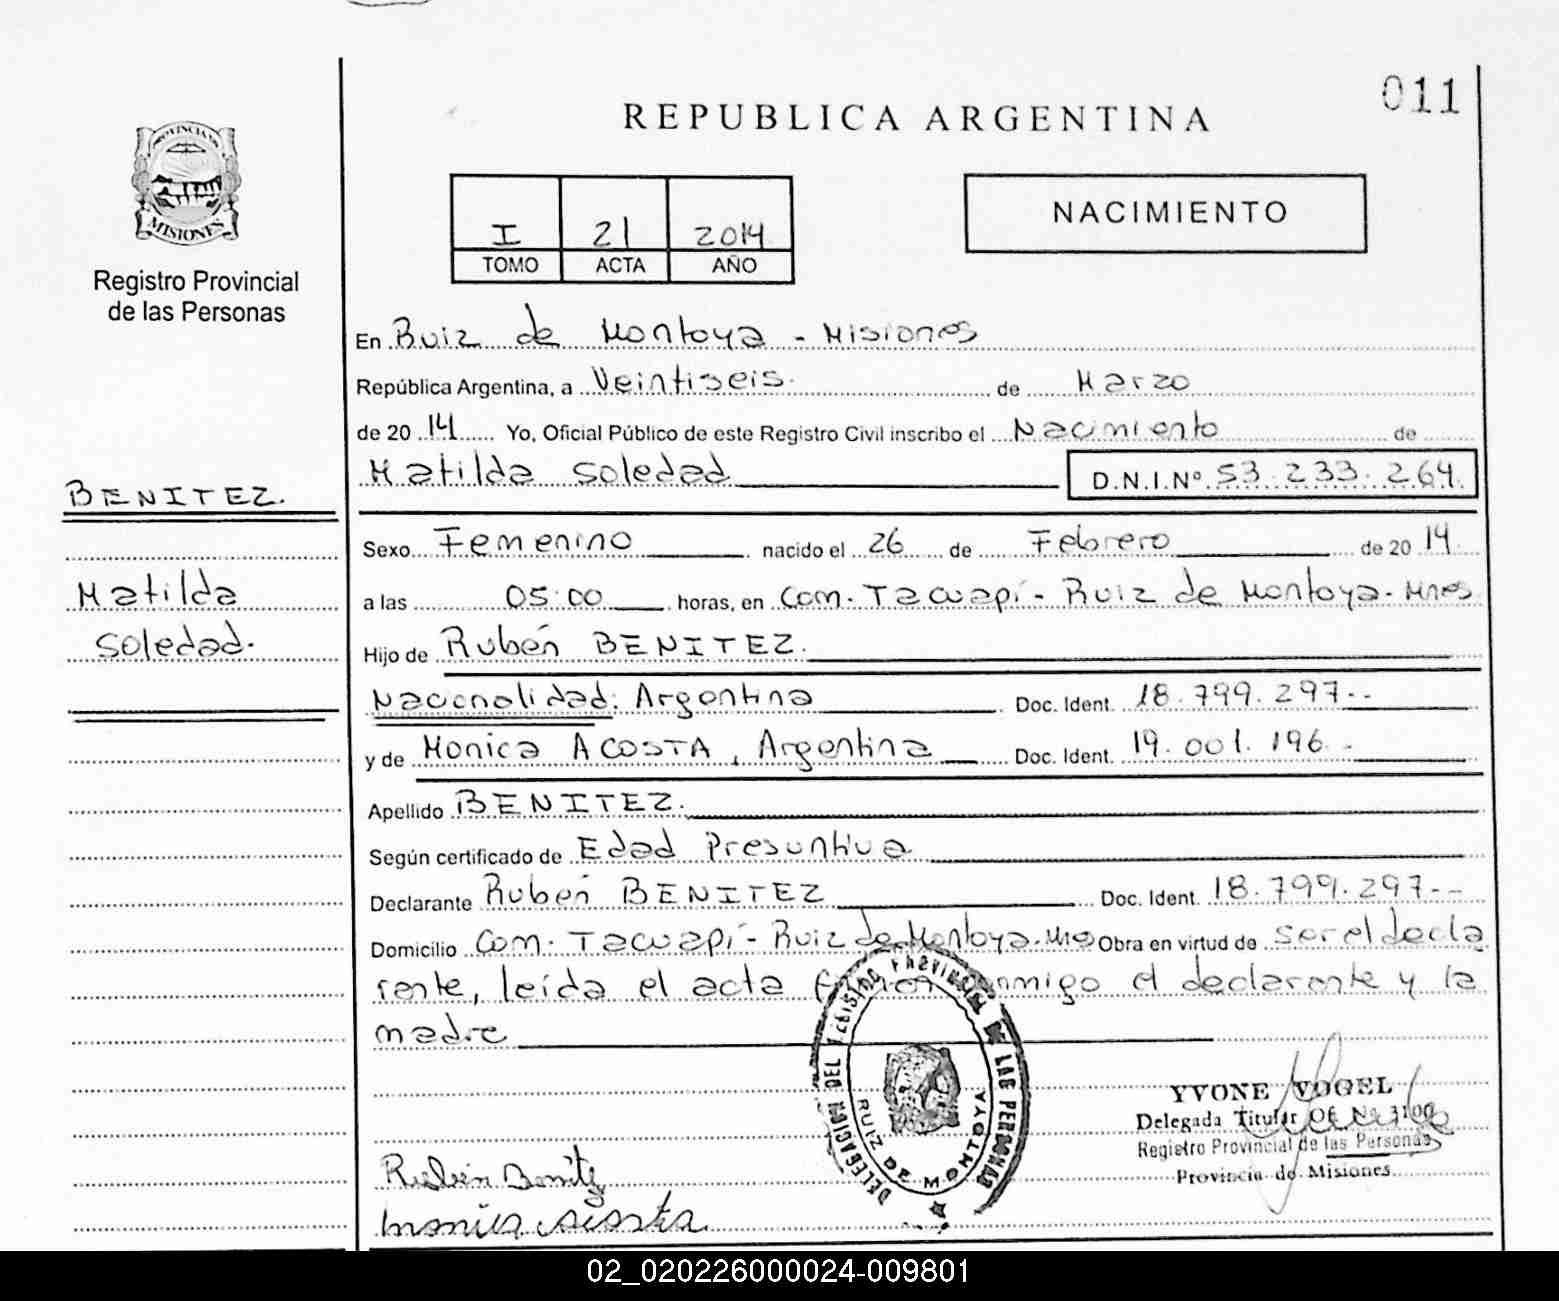 011
REPUBLICA ARGENTINA
PROVINCIA DE
MISIONES
Registro Provincial
de las Personas
I 21 2014
TOMO ACTA AÑO
NACIMIENTO
En Ruiz de Montoya - Misiones
República Argentina, a Veintiseis. de Marzo
de 20 14 Yo, Oficial Público de este Registro Civil inscribo el Nacimiento de
Matilda Soledad D.N.I.Nº 53.233.264.
BENITEZ.
Matilda
Soledad.
Sexo Femenino nacido el 26 de Febrero de 20 14.
a las 05:00 horas, en Com. Tacuapí - Ruiz de Montoya - Mnes
Hijo de Rubén BENITEZ.
Nacionalidad: Argentina Doc. Ident. 18.799.297--
y de Monica ACOSTA, Argentina Doc. Ident. 19.001.196-
Apellido BENITEZ.
Según certificado de Edad Presuntiva
Declarante Rubén BENITEZ Doc. Ident. 18.799.297--
Domicilio Com. Tacuapí - Ruiz de Montoya. Obra en virtud de ser el decla
rante, leída el acta firman conmigo el declarante y la
madre
DELEGACION DEL REGISTRO PROVINCIAL DE LAS PERSONAS
RUIZ DE MONTOYA
YVONE VOGEL
Delegada Titular Of. Nº 3100
Registro Provincial de las Personas
Provincia de Misiones
Rubén Benitz
monica acosta
02_020226000024-009801